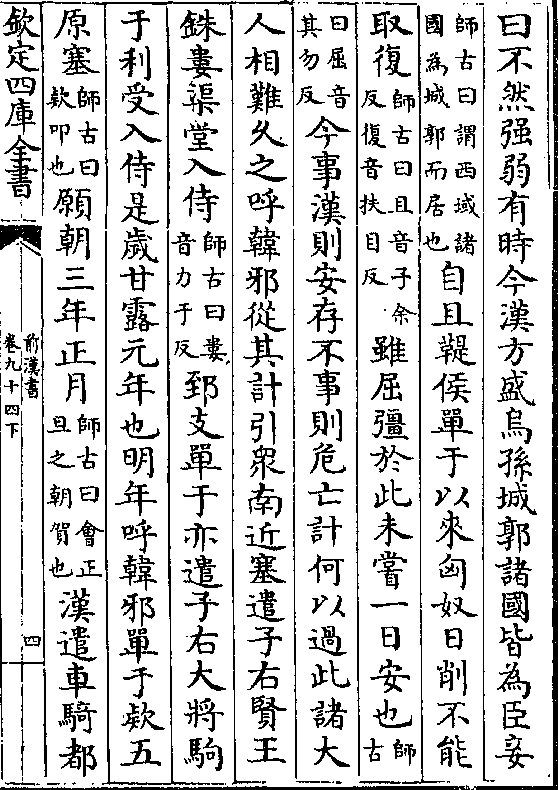 曰不然强弱有時今漢方盛烏孫城郭諸國皆為臣妾
師古曰謂西域諸
國為城郭而居也
自且鞮侯單于以來匈奴日削不能
取復
師古曰且音子余
反復音扶目反
雖屈彊於此未嘗一日安也
師
古
曰屈音
其勿反
今事漢則安存不事則危亡計何以過此諸大
人相難久之呼韓邪從其計引衆南近塞遣子右賢王
銖婁渠堂入侍
師古曰婁
音力于反
郅支單于亦遣子右大將駒
于利受入侍是歲甘露元年也明年呼韓邪單于欵五
原塞
師古曰
欵叩也
願朝三年正月
師古曰會正
旦之朝賀也
漢遣車騎都
欽定四庫全書
前漢書
卷九十四下
四